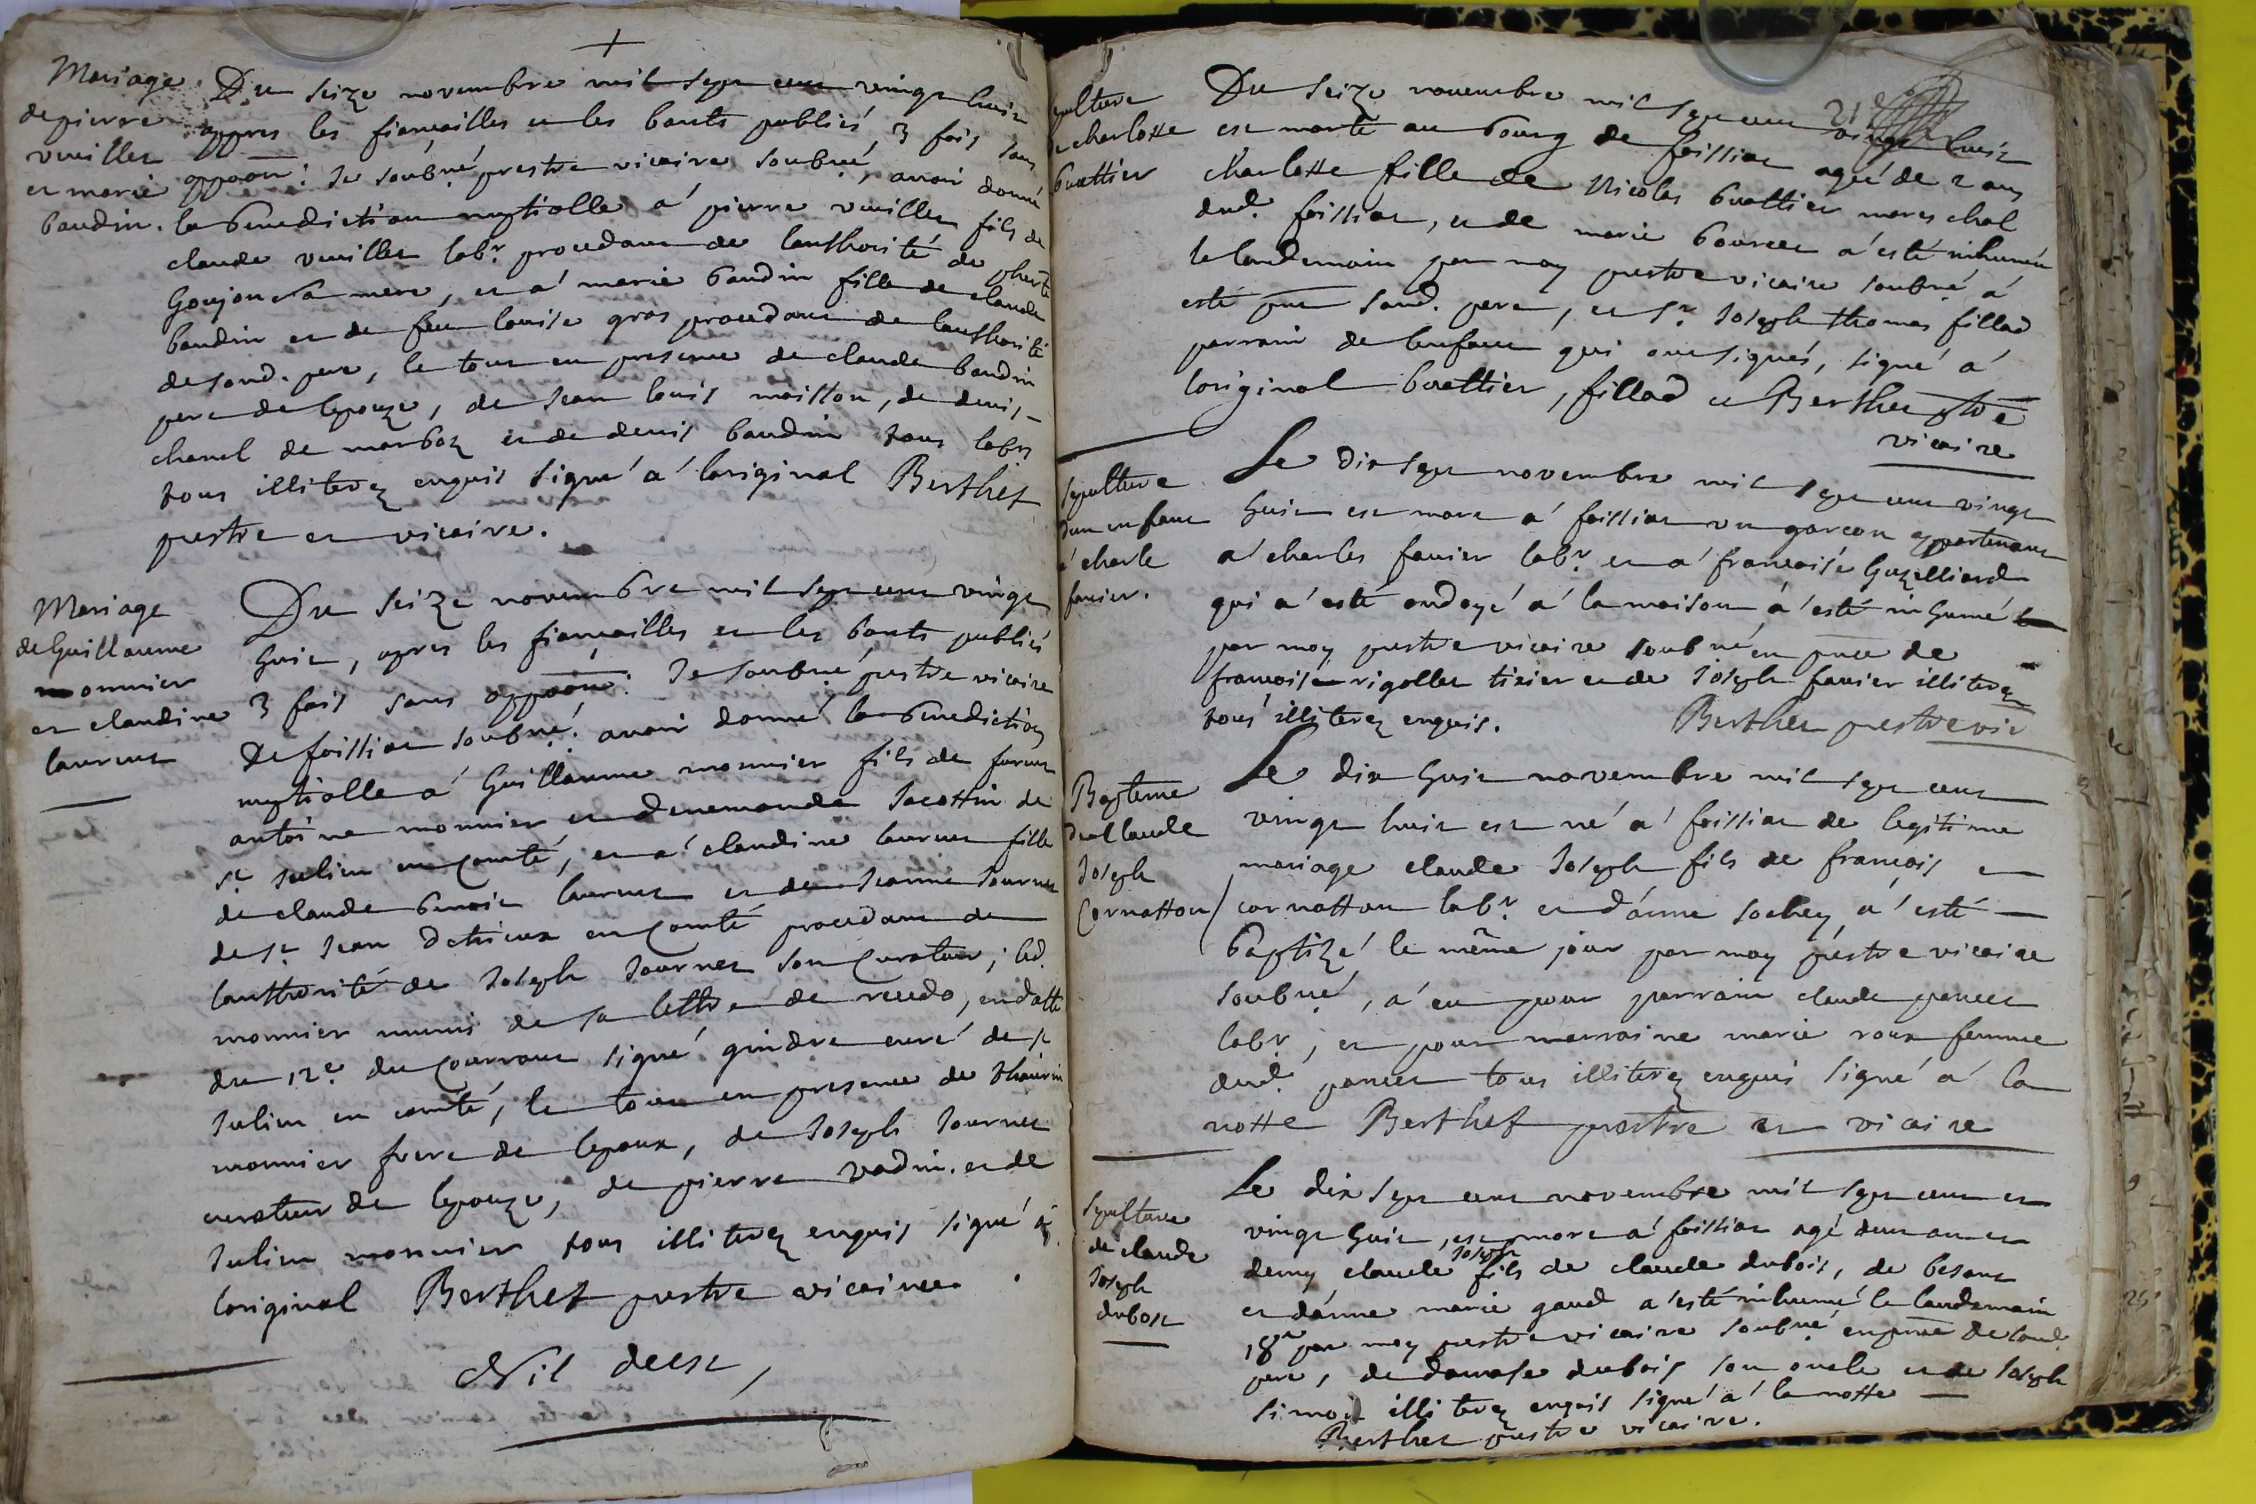 Mariage
de pierre
vuillet
et marie
baudin.
Du seize novembre mil sept cent vingt huit
appres les fiancailles et les bants publiés 3 fois sans
oppoon: Je soubné prestre vicaire soubné, avoir donné
la benediction nuptialle a' pierre vuillet fils de
claude vuillet labr. procedant de lauthorité de
Goujon sa mere, et a' marie baudin fille de claude
baudin et de feu louise gros procedant de lauthorité
de sond. pere, le tout en presence de claude baudin
pere de lepouze, de Jean louis moisson, de denis
chanel de marboz et de denis baudin tous labrs
tous illiterez enquis signé a' loriginal Berthet
prestre et vicaire.
Mariage
de Guillaume
monnier
et claudine
laurent
Du seize novembre mil sept cent vingt
huit, apres les fiancailles et les bants publiés
3 fois sans oppoon: Je soubné prestre vicaire
De foissiat soubné. avoir donné la benediction
nuptialle a' Guillaume monnier fils de
antoine monnier et Jacottin de
st Julien en comté, et a' claudine laurent fille
de claude benoit laurent et de Jeanne Journet
de st Jean Detrieux en comté procedant de
lauthorité de Joseph Journet son curateur; led.
monnier munis de sa lettre de recedo, en datte
du 12e. du courrant signé gindre curé de st
Julien en comté, le tout en presence de
monnier frere de lepoux, de Joseph Journet
curateur de lepouze, de pierre vadin. et de
Julien monnier tous illiterez enquis signé a'
loriginal Berthet prestre vicaire.
Nil deest,
21
sepulture
de charlotte
buattier
Du seize novembre mil sept cent vingt huit
est morte au bourg de foissiat ageé de 2 ans
charlotte fille de Nicolas buattier mareschal
dud. foissiat, et de marie bourcet a' esté inhumeé
le landemain par moy prestre vicaire soubné a'
esté pnt sond. pere, et sr. Joseph thomas fillod
parrain de lenfant qui ont signés, signé a'
loriginal buattier, fillod et Berthet ptre
vicaire
sepulture
dun enfant
a' charle
favier.
Le dix sept novembre mil sept cent vingt
huit est mort a' foissiat un garcon appartenant
a' charles favier labr. et a' francoise Guzelliard
qui a' esté ondoyé a' la maison a' esté inhumé
par moy prestre vicaire soubné en pnce de
francoise rigollet tixier et de Joseph favier illiterez
tous illiterez enquis. Berthet prestre vic
Bapteme
de Claude
Joseph
Cornatton
Le dix huit novembre mil sept cent
vingt huit est né a' foissiat de legitime
mariage claude Joseph fils de francois
cornatton labr. et d'anne sochey a' esté
baptizé le même jour par moy prestre vicaire
soubné, a' eu pour parrain claude poncet
labr, et pour marraine marie roux femme
dud. poncet tous illiterez enquis signé a' la
notte Berthet prestre et vicaire
sepulture
de claude
Joseph
dubois
Le dix sept cent novembre mil sept cent et
vingt huit, est mort a' foissiat agé dun an et
demy claude Joseph fils de claude dubois, de
et d'anne marie gaud a' esté inhumé le landemain
18e par moy prestre vicaire soubné en pnce de sond.
pere, de damase dubois son oncle et de Joseph
simon illiterez enquis signé a' la notte
Berthet prestre vicaire.